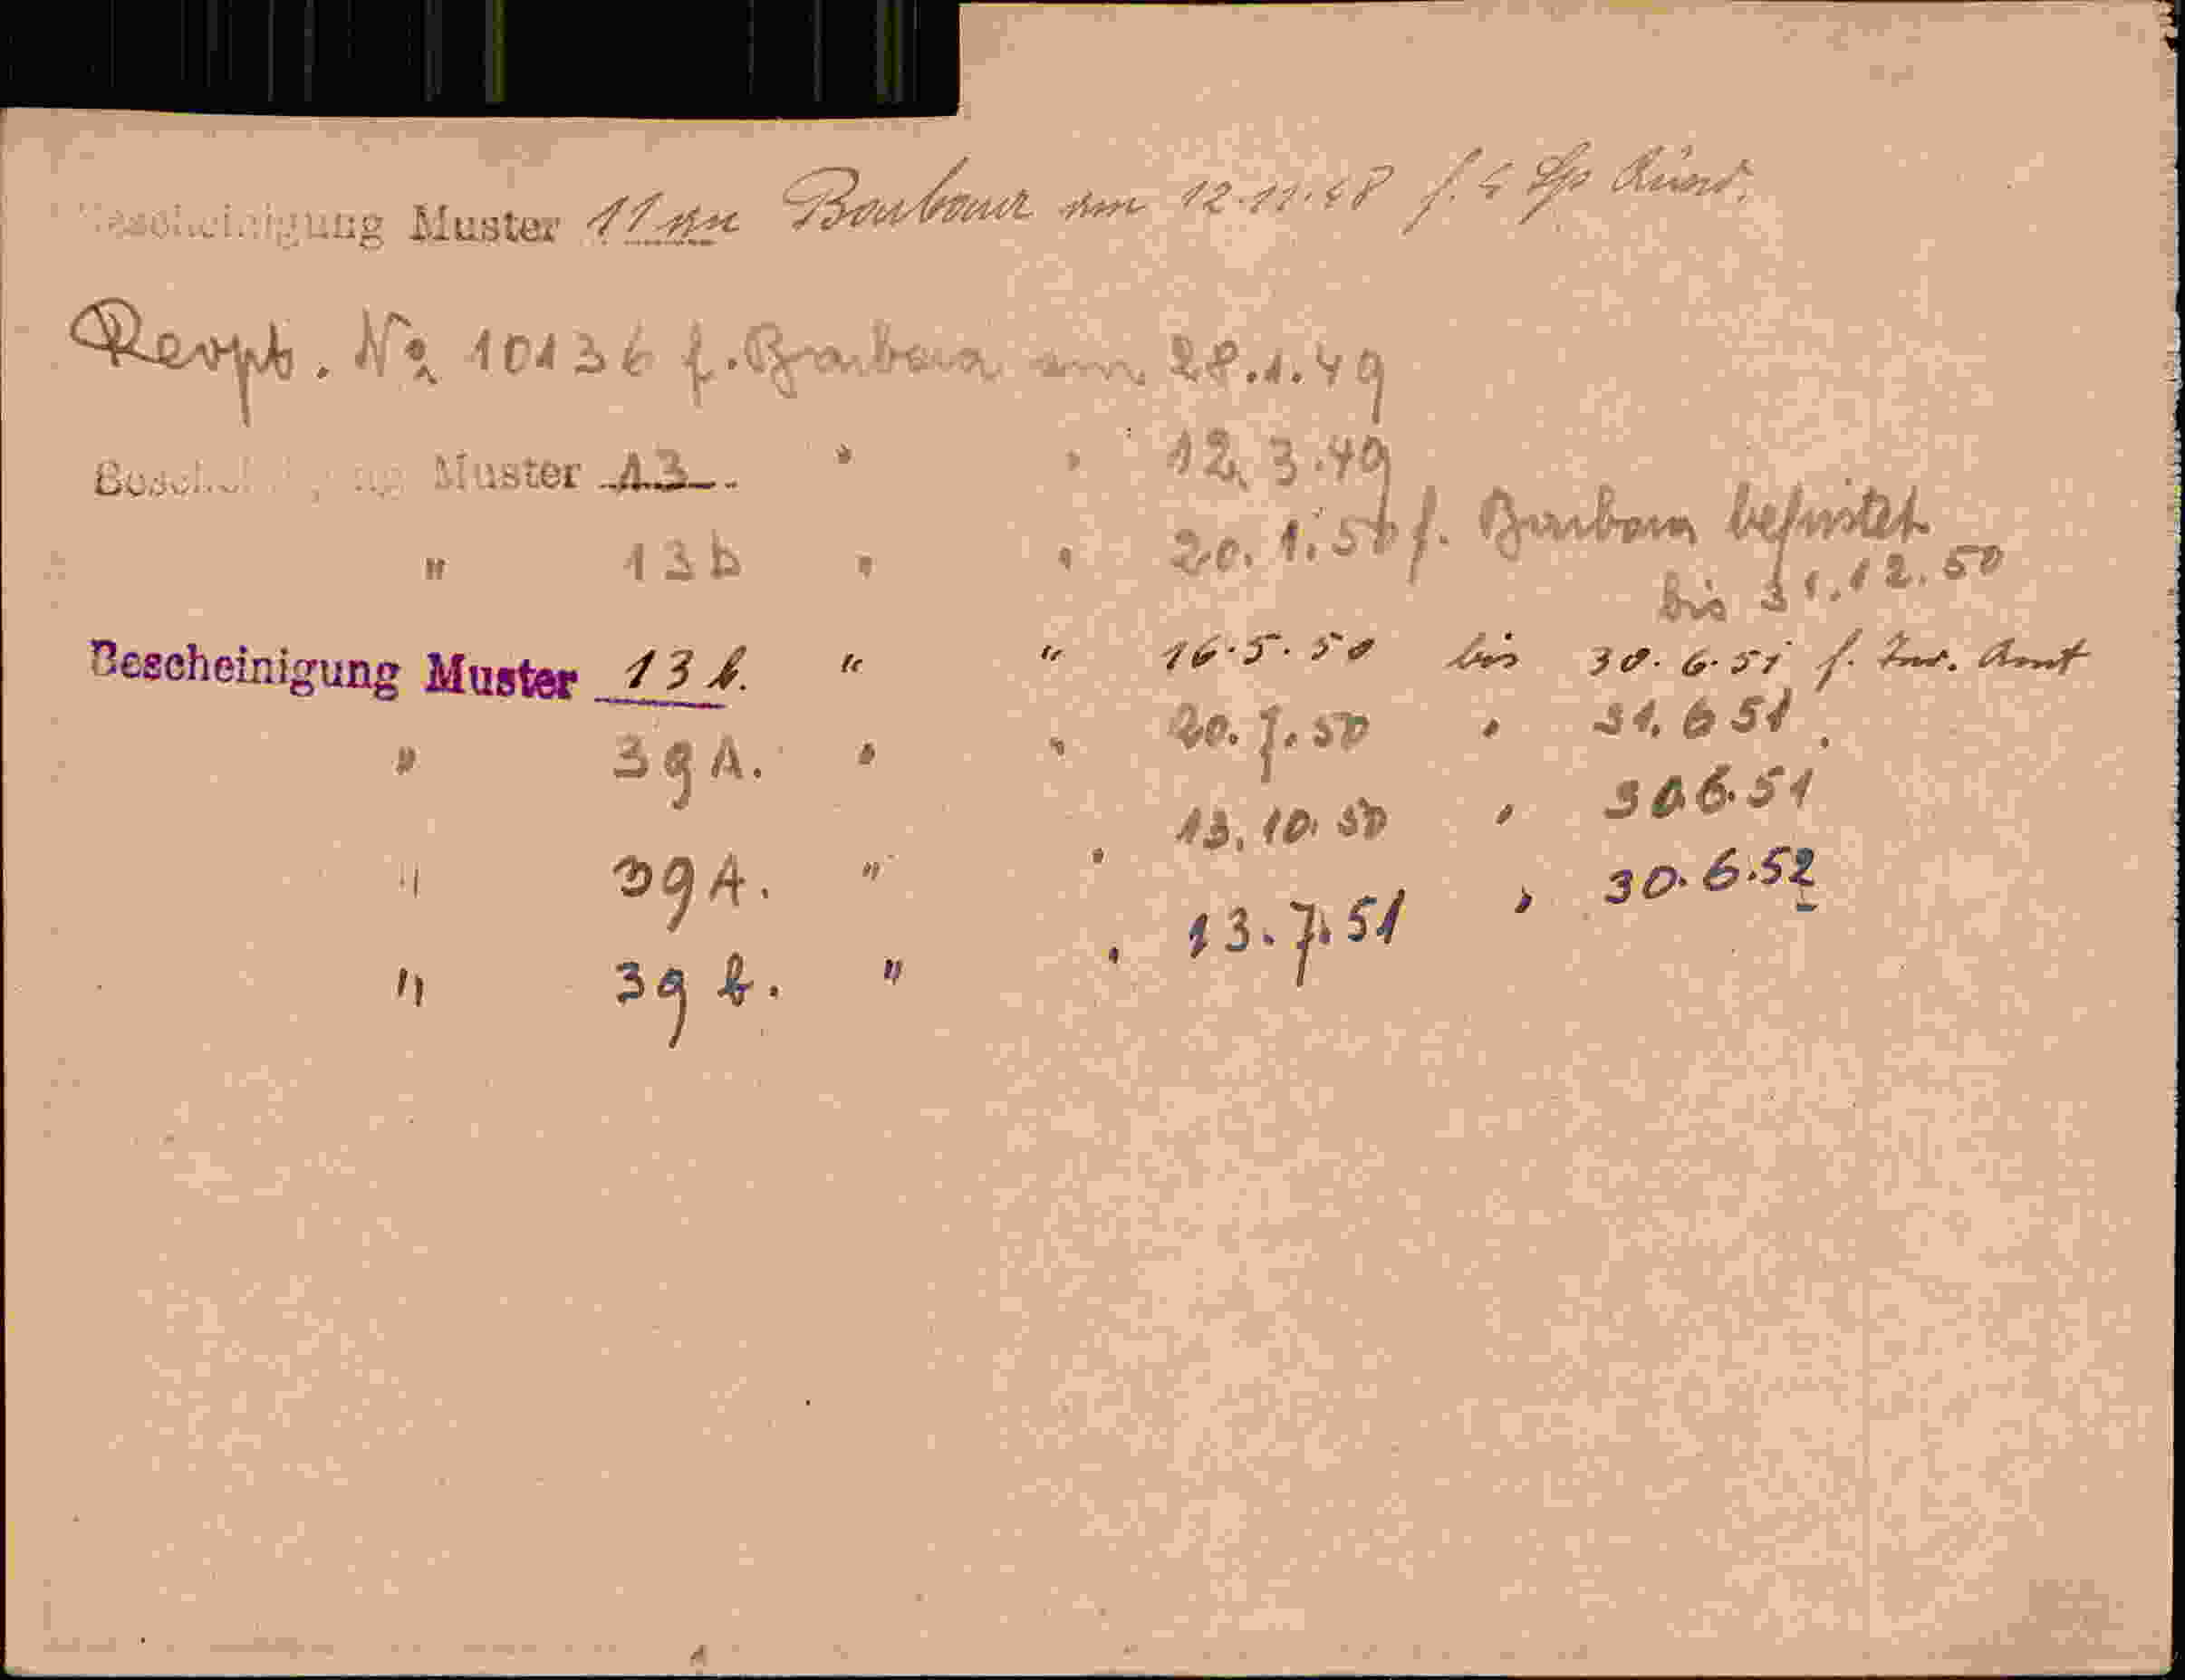 Bescheinigung Muster 11 an Barbara am 12.11.48 f.
Rezept. No 10136 f. Barbara am 28.1.49
Bescheinigung Muster 13 " " 12.3.49
" 13 b " " 20.1.50 f. Barbara befristet
bis 31.12.50
Bescheinigung Muster 13 b. " " 16.5.50 bis 30.6.51 f. Amt
" 39 A. " " 20.7.50 " 31.6 51
" 39 A. " " 13.10.50 " 30.6.51
" 39 b. " " 13.7.51 " 30.6.52